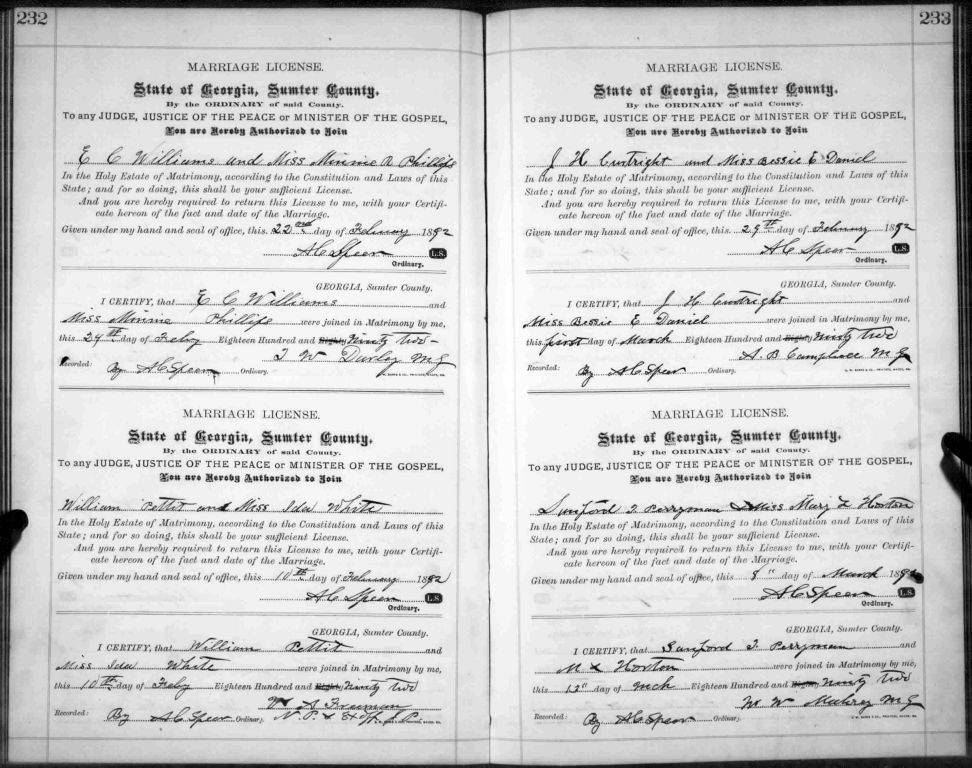 232
MARRIAGE LICENSE.
State of Georgia, Sumter County.
By the ORDINARY of said County.
To any JUDGE, JUSTICE OF THE PEACE or MINISTER OF THE GOSPEL,
You are Hereby Authorized to Join
E C Williams and Miss Minnie R Phillips
In the Holy Estate of Matrimony, according to the Constitution and Laws of this
State; and for so doing, this shall be your sufficient License.
And you are hereby required to return this License to me, with your Certifi-
cate hereon of the fact and date of the Marriage.
Given under my hand and seal of office, this 22nd day of February 1892
A C Speer L.S.
Ordinary.
GEORGIA, Sumter County.
I CERTIFY, that E C Williams and
Miss Minnie Phillips were joined in Matrimony by me,
this 29th day of Feby Eighteen Hundred and Eighty Ninety two
J W M G
Recorded: By A C Speer Ordinary.
MARRIAGE LICENSE.
State of Georgia, Sumter County.
By the ORDINARY of said County.
To any JUDGE, JUSTICE OF THE PEACE or MINISTER OF THE GOSPEL,
You are Hereby Authorized to Join
William Pettit and Miss Ida White
In the Holy Estate of Matrimony, according to the Constitution and Laws of this
State; and for so doing, this shall be your sufficient License.
And you are hereby required to return this License to me, with your Certifi-
cate hereon of the fact and date of the Marriage.
Given under my hand and seal of office, this 10th day of February 1892
A C Speer L.S.
Ordinary.
GEORGIA, Sumter County.
I CERTIFY, that William Pettit and
Miss Ida White were joined in Matrimony by me,
this 10th day of Feby Eighteen Hundred and Eighty Ninety two
A Freeman
Recorded: By A C Speer Ordinary. N. P. & J P
233
MARRIAGE LICENSE.
State of Georgia, Sumter County.
By the ORDINARY of said County.
To any JUDGE, JUSTICE OF THE PEACE or MINISTER OF THE GOSPEL,
You are Hereby Authorized to Join
J H Cutright and Miss Bessie E Daniel
In the Holy Estate of Matrimony, according to the Constitution and Laws of this
State; and for so doing, this shall be your sufficient License.
And you are hereby required to return this License to me, with your Certifi-
cate hereon of the fact and date of the Marriage.
Given under my hand and seal of office, this 29th day of February 1892
A C Speer L.S.
Ordinary.
GEORGIA, Sumter County.
I CERTIFY, that J H Cutright and
Miss Bessie E Daniel were joined in Matrimony by me,
this first day of March Eighteen Hundred and Eighty Ninety two
A. B. M G
Recorded: By A C Speer Ordinary.
MARRIAGE LICENSE.
State of Georgia, Sumter County.
By the ORDINARY of said County.
To any JUDGE, JUSTICE OF THE PEACE or MINISTER OF THE GOSPEL,
You are Hereby Authorized to Join
Sanford T. Perryman & Miss Mary L Horton
In the Holy Estate of Matrimony, according to the Constitution and Laws of this
State; and for so doing, this shall be your sufficient License.
And you are hereby required to return this License to me, with your Certifi-
cate hereon of the fact and date of the Marriage.
Given under my hand and seal of office, this 8" day of March 1892
A C Speer L.S.
Ordinary.
GEORGIA, Sumter County.
I CERTIFY, that Sanford T. Perryman and
M L Horton were joined in Matrimony by me,
this 13" day of Mch Eighteen Hundred and Eighty Ninety two
W W M G
Recorded: By A C Speer Ordinary.